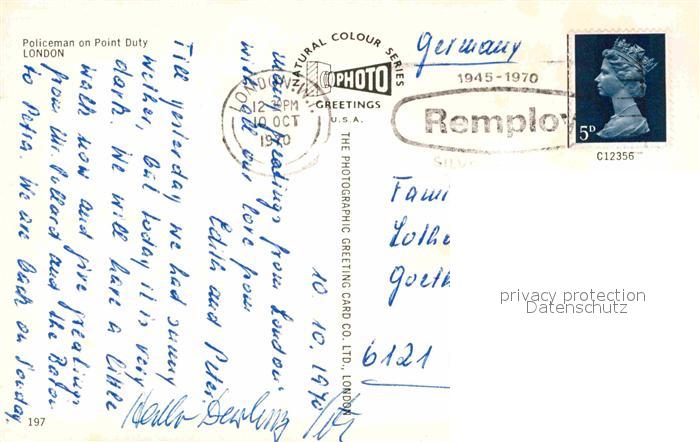 Policeman on Point Duty
LONDON
NATURAL COLOUR SERIES
PHOTO
GREETINGS
U.S.A.
Germany
LONDON
12 PM
10 OCT
1970
1945-1970
Remploy
SILV
5D
C12356
10.10.1970
many grealings from London
with all our love from
Edith and Peter
Till yesterday we had sunny
wether, but today it is very
dark. We will have a little
walk now and give grealings
from Mr. Pollard and the
to Petra. We are back on Sonday.
THE PHOTOGRAPHIC GREETING CARD CO. LTD., LONDON
Fami
Lothe
Goeth
6121
privacy protection
Datenschutz
197